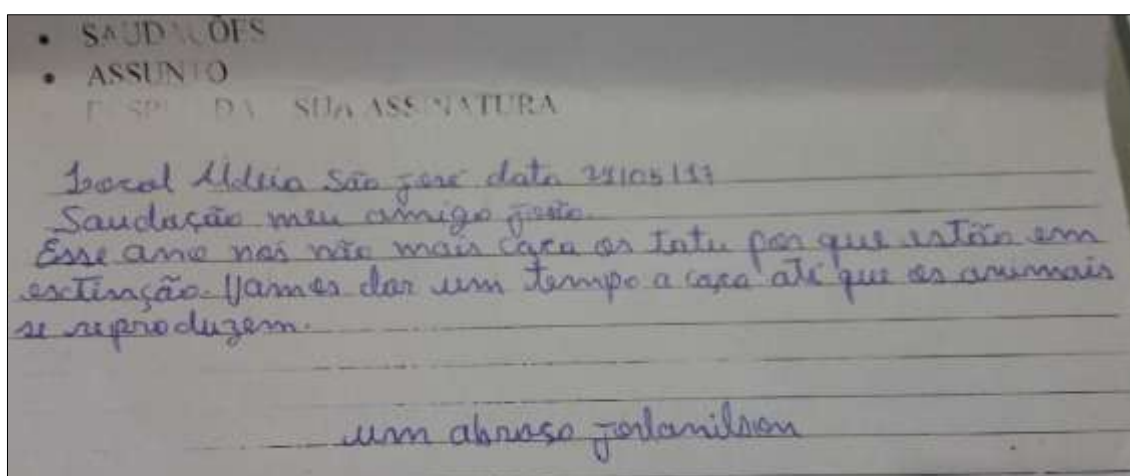 • SAUDAÇÕES
• ASSUNTO
SUA ASSINATURA
Local Aldeia São José data 21/05/17
Saudação meu amigo
Esse ano nos não mais caça os tatu por que estão em
esctinção. Vamos dar um tempo a caça até que os anumais
se reproduzem.
um abraso Jorlanilson